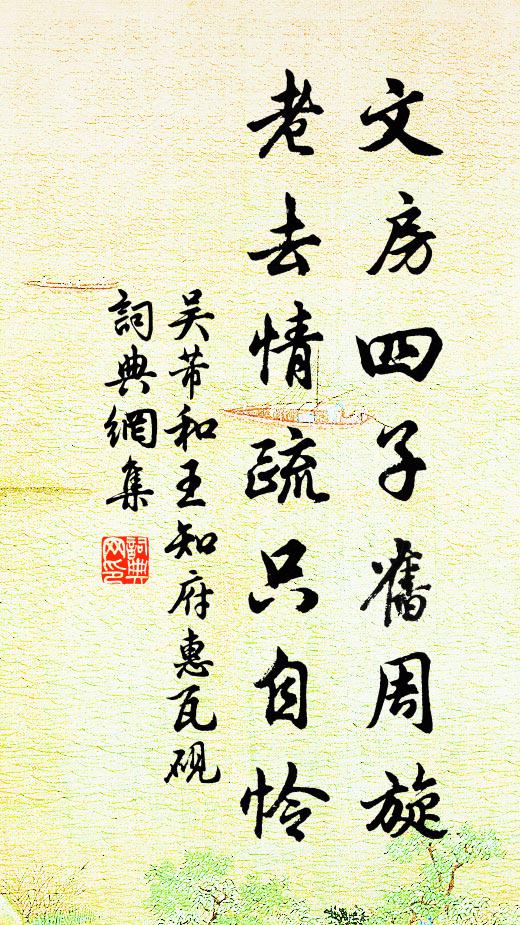 文房四子舊周旋
老去情疏只自怜
吴芾和王知府惠瓦砚
詞典網集
詞典网印